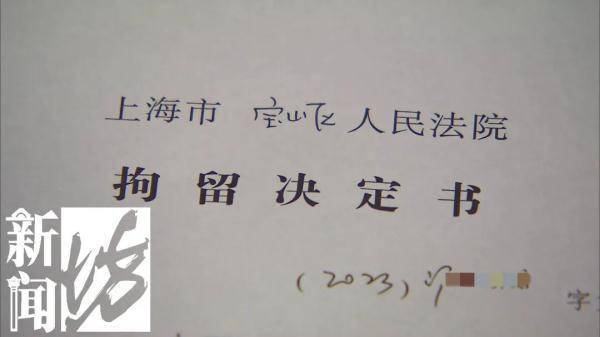 上海市 宝山区 人民法院
拘留决定书
(2023)沪
字
新闻坊